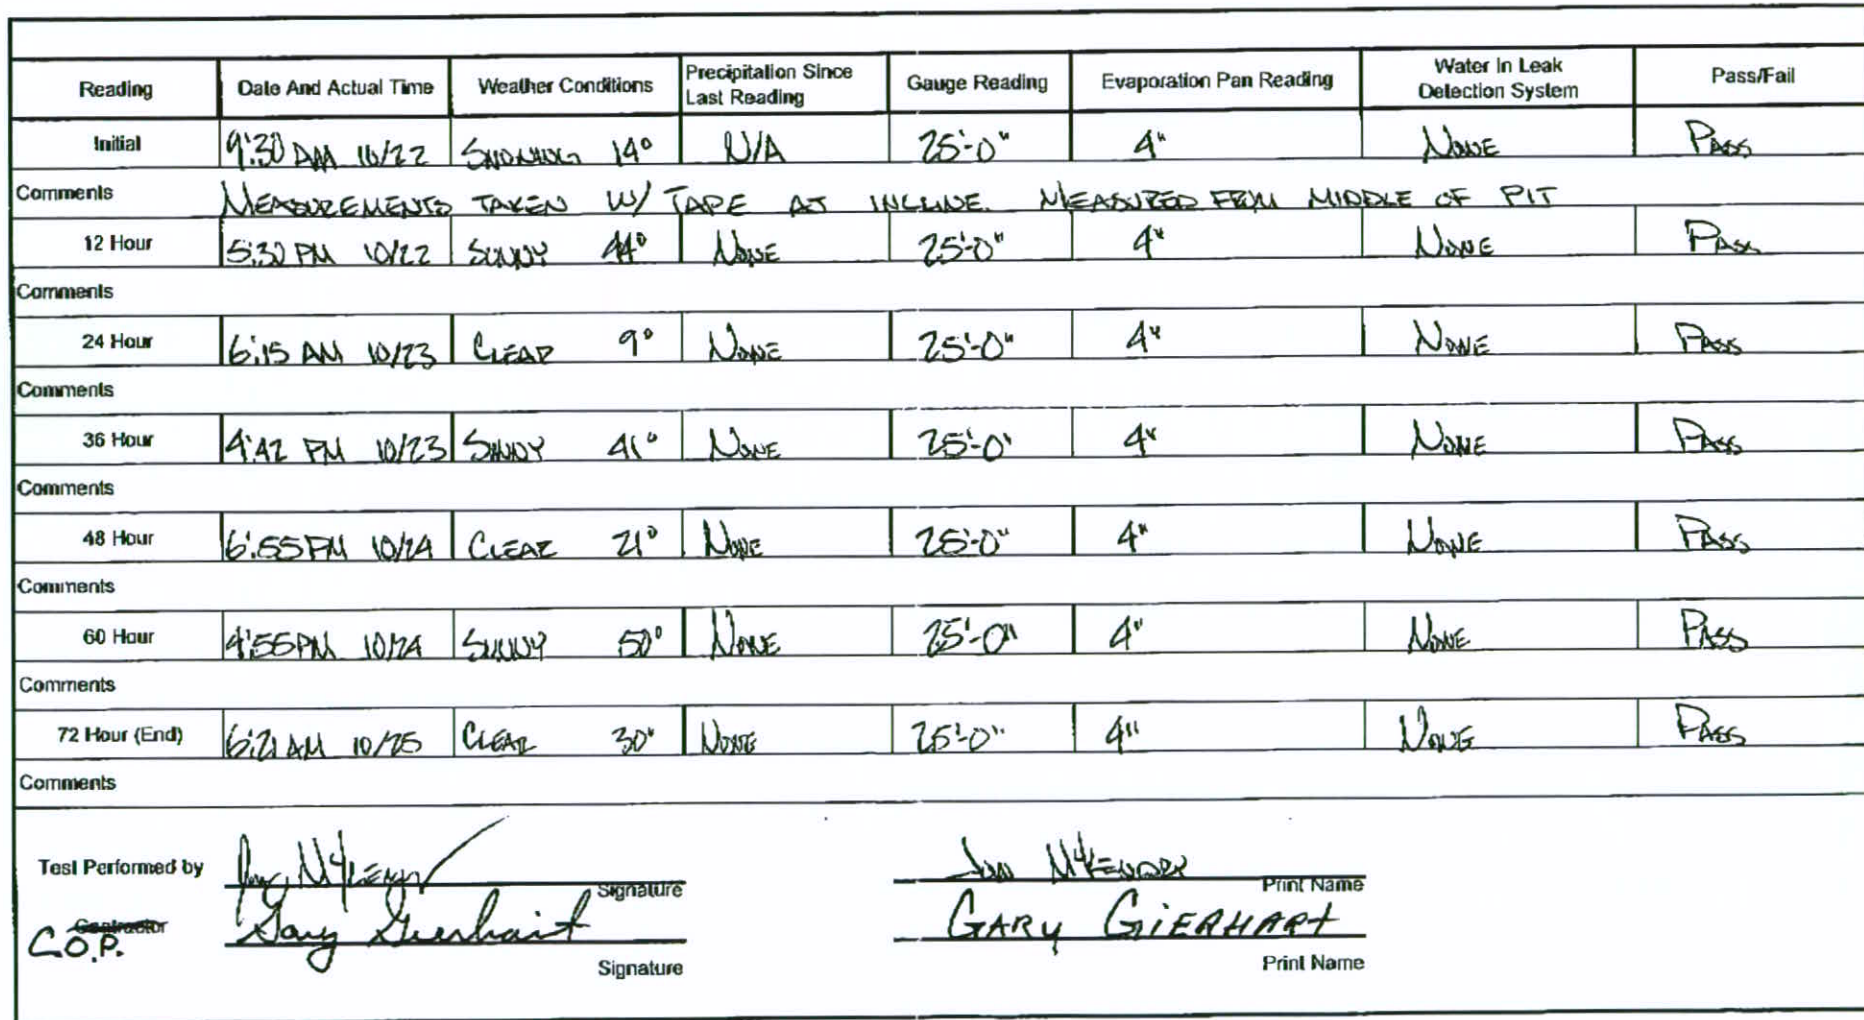 Reading Date And Actual Time Weather Conditions Precipitation Since Last Reading Gauge Reading Evaporation Pan Reading Water In Leak Detection System Pass/Fail
Initial 9:30 AM 10/22 SNOWING 14° N/A 25'-0" 4" NONE PASS
Comments MEASUREMENTS TAKEN W/ TAPE AT INCLINE. MEASURED FROM MIDDLE OF PIT
12 Hour 5:30 PM 10/22 SUNNY 44° NONE 25'-0" 4" NONE PASS
Comments
24 Hour 6:15 AM 10/23 CLEAR 9° NONE 25'-0" 4" NONE PASS
Comments
36 Hour 4:42 PM 10/23 SUNNY 41° NONE 25'-0" 4" NONE PASS
Comments
48 Hour 6:55 PM 10/24 CLEAR 21° NONE 25'-0" 4" NONE PASS
Comments
60 Hour 4:55 PM 10/24 SUNNY 50° NONE 25'-0" 4" NONE PASS
Comments
72 Hour (End) 6:21 AM 10/25 CLEAR 30° NONE 25'-0" 4" NONE PASS
Comments
Test Performed by
Signature
Print Name
Contractor
C.O.P. Gary Gierhart GARY GIERHART
Signature Print Name